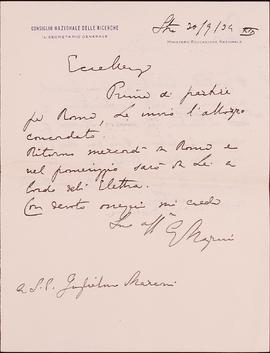 CONSIGLIO NAZIONALE DELLE RICERCHE
IL SEGRETARIO GENERALE
20/9/34 XII
MINISTERO EDUCAZIONE NAZIONALE
Eccellenza
Prima di partire
per Roma, Le invio l'
concordato.
Ritorno mercoledì a Roma e
nel pomeriggio sarò da Lei a
bordo dell'Elettra.
Con devoto ossequio mi creda
Suo aff
G Magrini
a S.E. Guglielmo Marconi